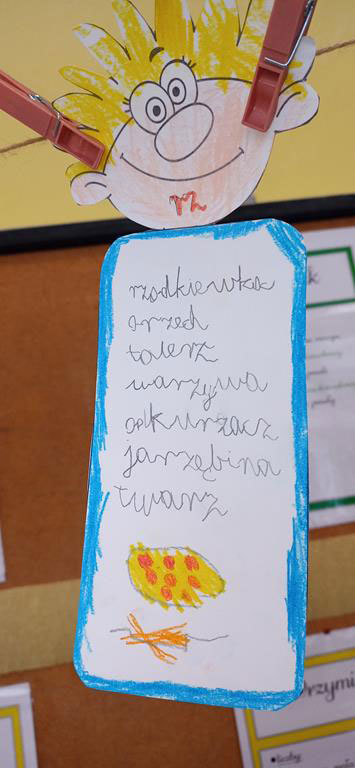 rz
rzodkiewka
orzech
talerz
warzywa
odkurzacz
jarzębina
twarz